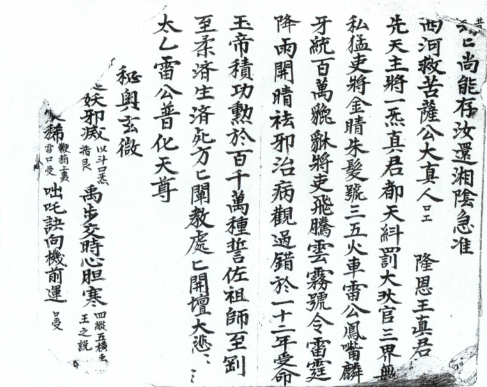 亡尚能存汝還湘陰急准
西河救苦薩公大真人 隆恩王真君
先天主將一炁真君都天糾罰大灵官三界無
私猛吏將金睛朱髮號三五火車雷公鳳嘴麟
牙統百萬貔貅將吏飛騰雲霧號令雷霆
降雨開晴祛邪治病觀過錯於一十二年受命
玉帝積功勲於百千萬種誓佐祖師至剛
至柔済生済死方匕闡教處匕開壇大悲
太乙雷公普化天尊
秘奥玄微
妖邪滅 以斗口炁 指艮 禹步交時心胆寒 四縱五橫 王之説
咄吒訣向機前運